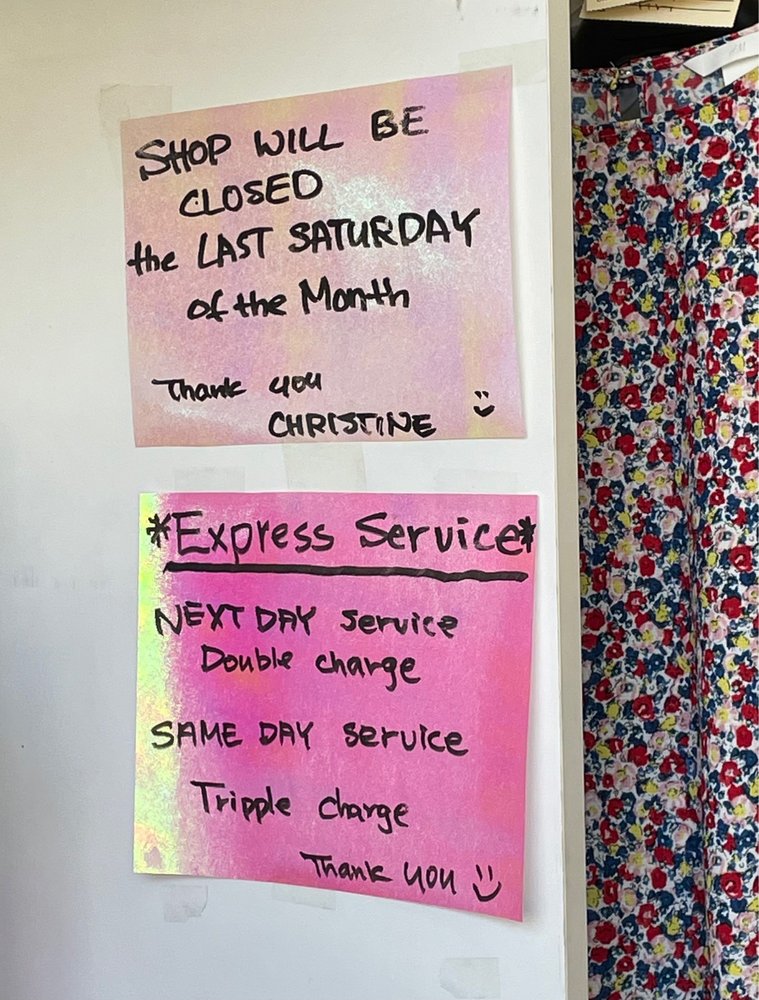 SHOP WILL BE
CLOSED
the LAST SATURDAY
of the Month
Thank you
CHRISTINE
*Express Service*
NEXT DAY service
Double charge
SAME DAY service
Tripple charge
Thank you